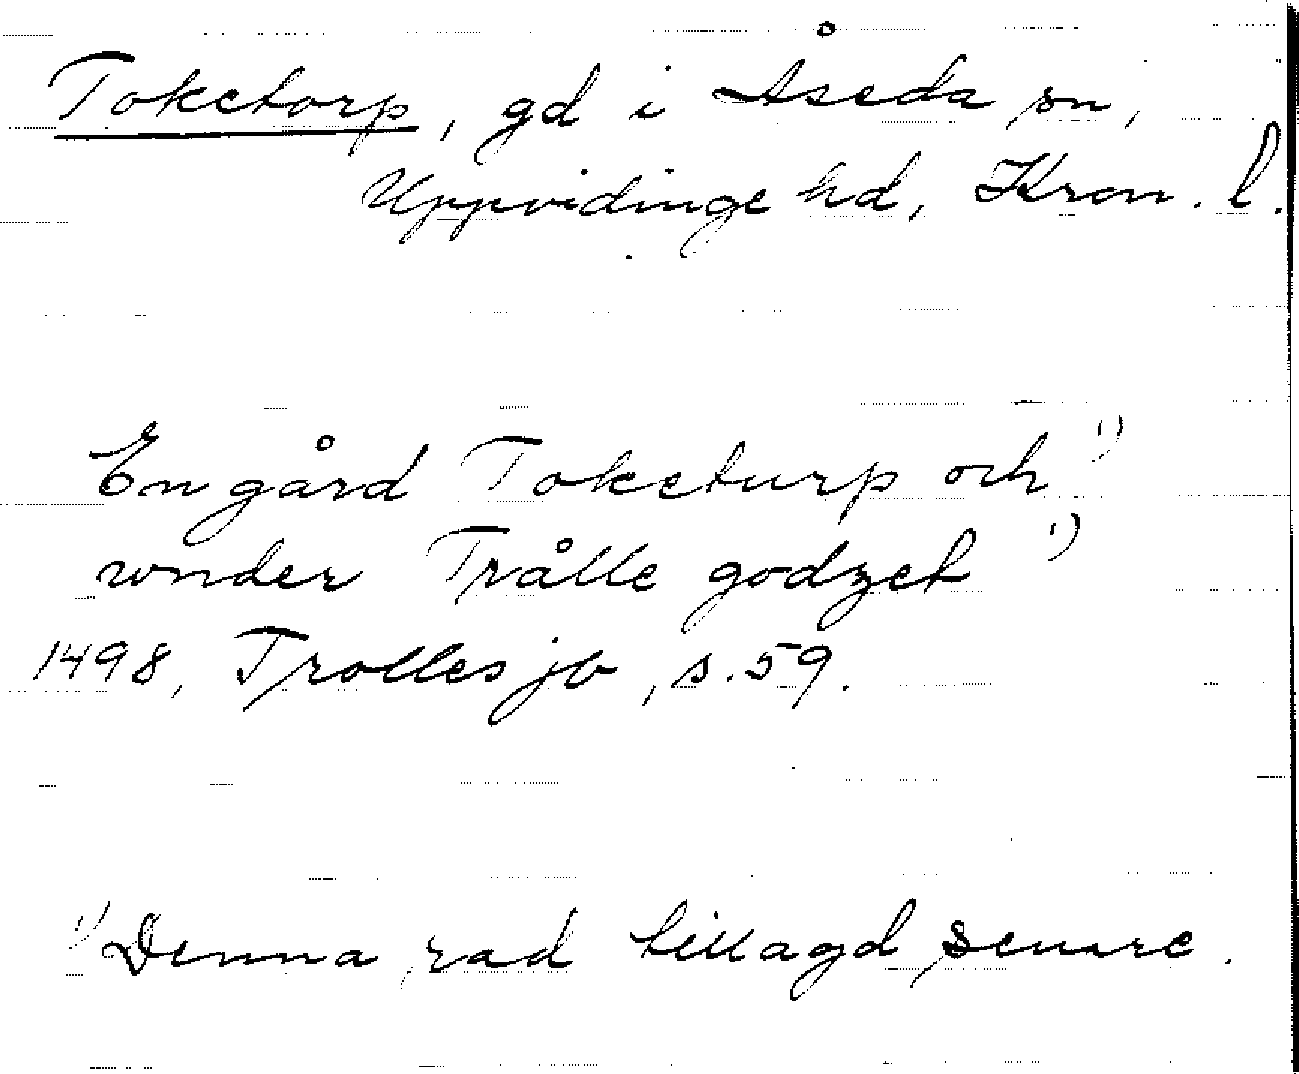 Toketorp, gd i Åseda sn,
Uppvidinge hd, Kron. l.
En gård Toketurp och ¹)
wnder Trålle godzet ¹)
1498, Trolles jb, s. 59.
¹) Denna rad tillagd senare.